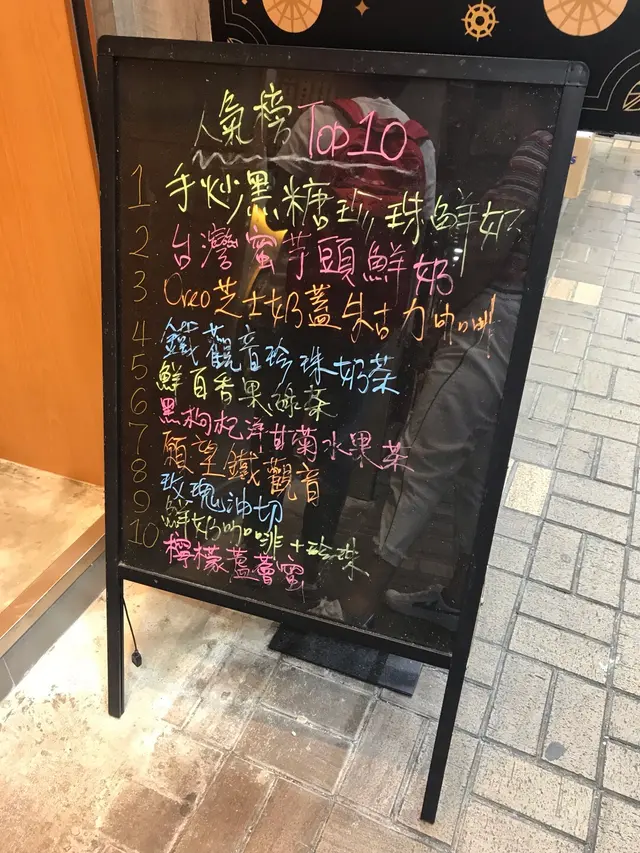 人氣榜 Top 10
1. 手炒黑糖珍珠鮮奶
2. 台灣蜜芋頭鮮奶
3. Oreo芝士奶蓋朱古力咖啡
4. 鐵觀音珍珠奶茶
5. 鮮百香果綠茶
6. 黑枸杞洋甘菊水果茶
7. 願望鐵觀音
8. 玫瑰油切
9. 鮮奶咖啡+珍珠
10. 檸檬蘆薈蜜